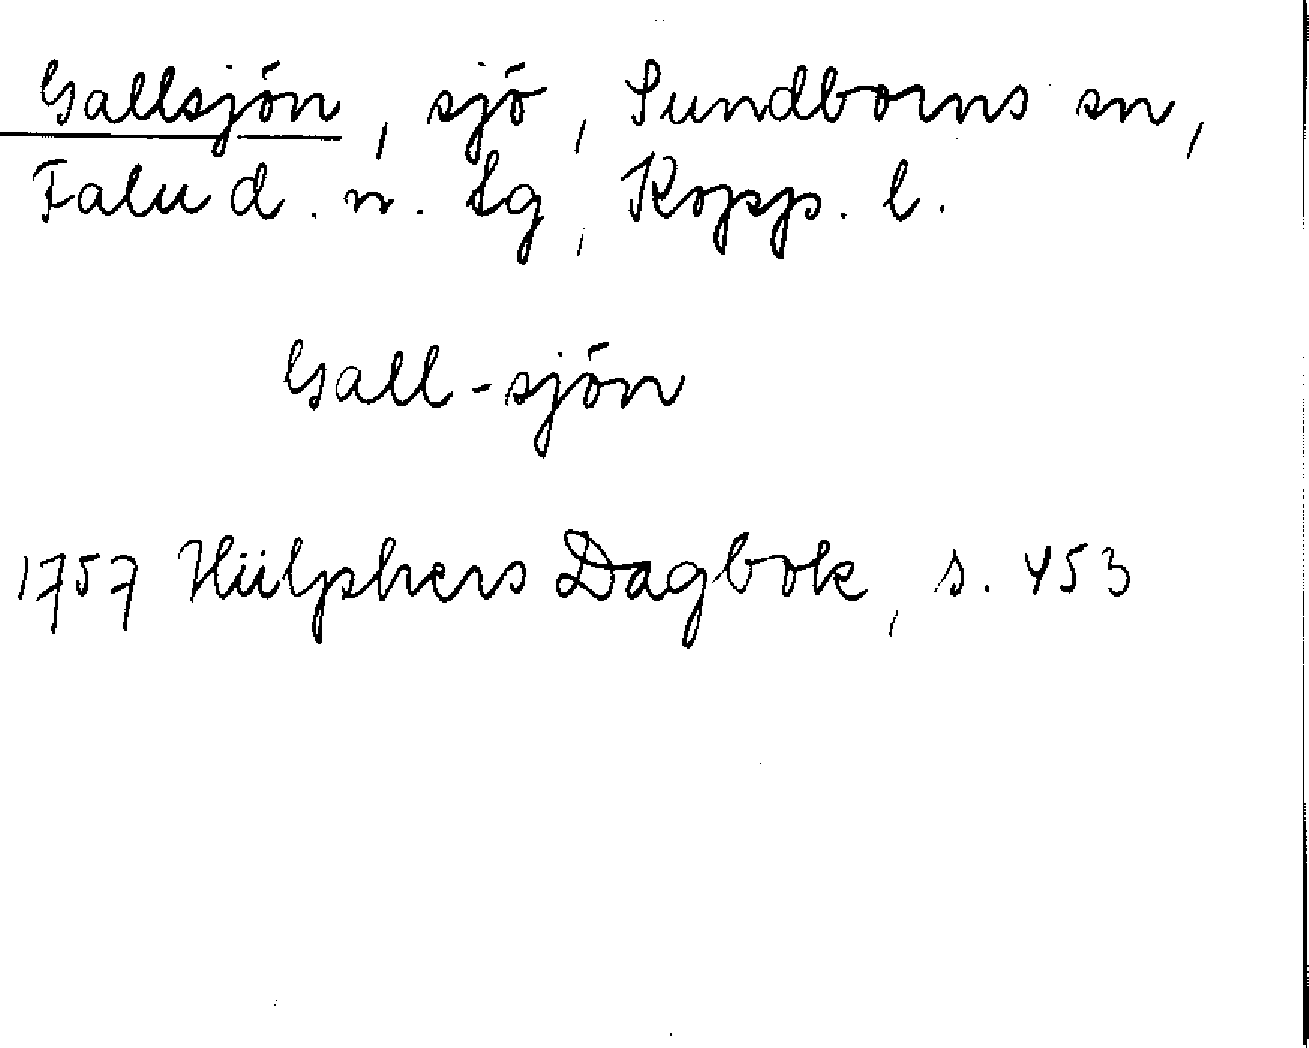 Gallsjön, sjö, Sundborns sn,
Falu d. n. tg, Kopp. l.
Gall-sjön
1757 Hülphers Dagbok, s. 453